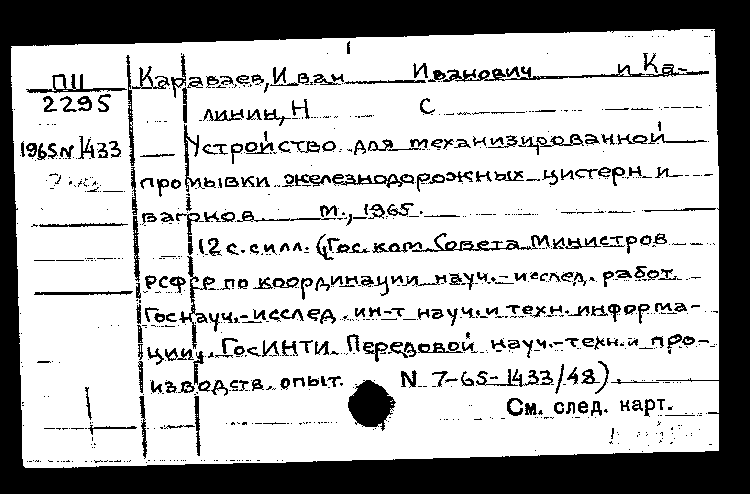 ПII Караваев, Иван Иванович и Ка-
2295 линин, Н С
1965N1433 Устройство для механизированной
промывки железнодорожных цистерн и
вагонов М., 1965.
12 с. с илл. (Гос. ком. Совета Министров
РСФСР по координации науч.-исслед. работ.
Госнауч.-исслед. ин-т науч. и техн. информа-
ции. ГосИНТИ. Передовой науч.-техн. и про-
изводств. опыт. N 7-65-1433/48).
См. след. карт.